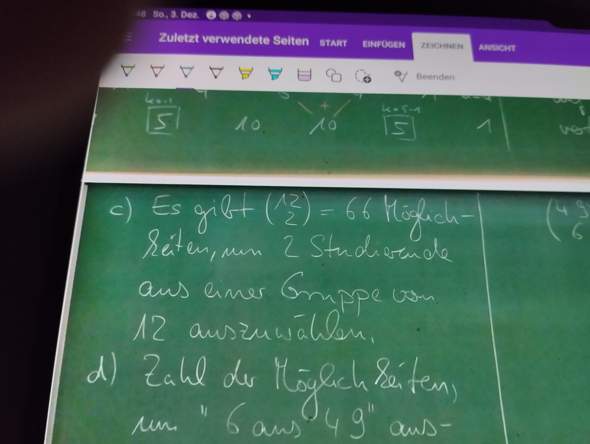 So., 3. Dez.
Zuletzt verwendete Seiten START EINFÜGEN ZEICHNEN ANSICHT
Beenden
5 10 10 5 1
c) Es gibt (12 2) = 66 Möglich-
keiten, um 2 Studierende
aus einer Gruppe von
12 auszuwählen.
d) Zahl der Möglichkeiten,
um "6 aus 49" aus-
(49 6